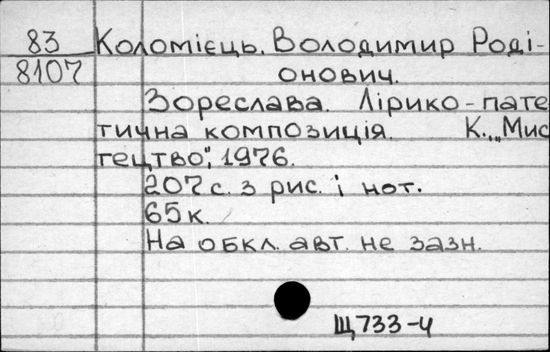 83 Коломієць. Володимир Роді-
8107 онович.
Зореслава. Лірико-пате
тична композиція. К., „Мис
тецтво", 1976.
207 с. з рис. і нот.
65 к.
На обкл. авт. не зазн.
Щ733-4